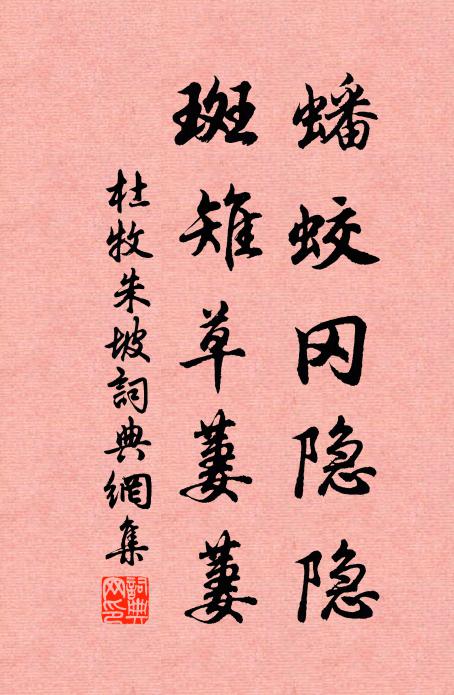 蟠蛟冈隐隐
斑雉草萋萋
杜牧朱坡詞典網集
詞典网印